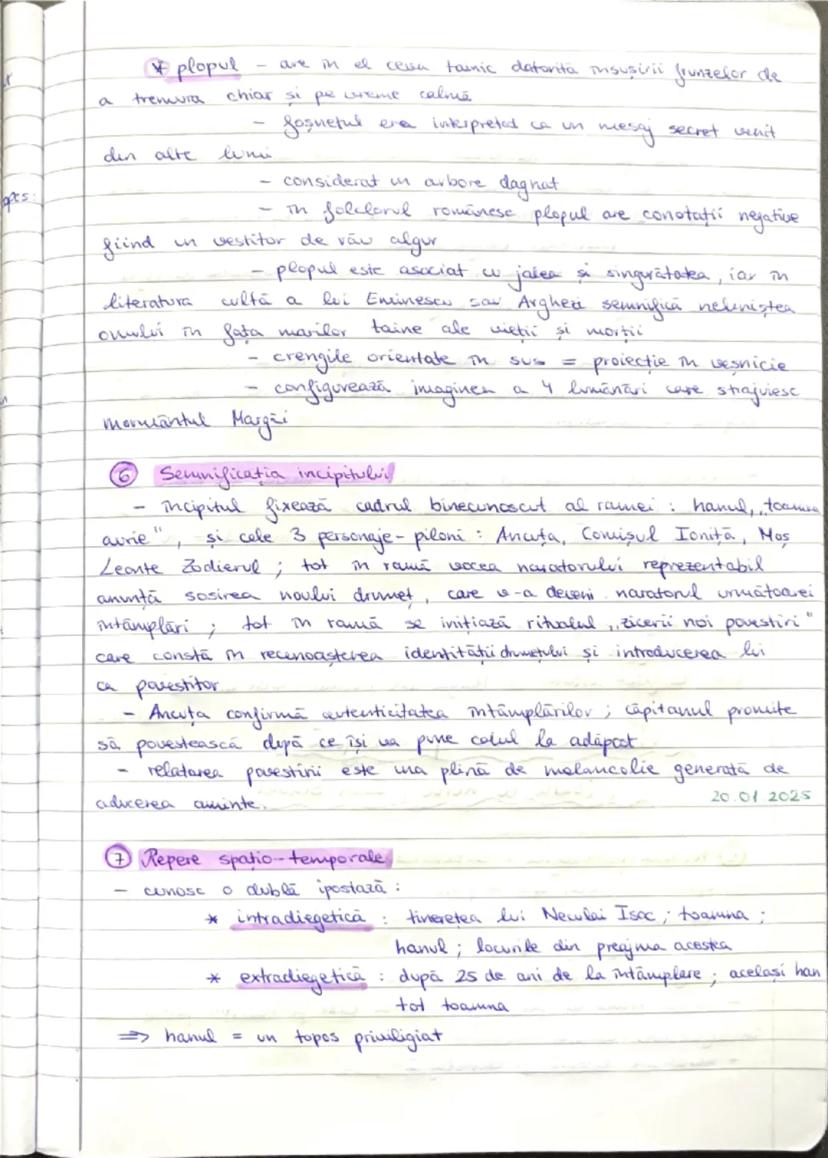 * plopul – are în el ceva tainic datorită însușirii frunzelor de
a tremura chiar și pe vreme calmă
– foșnetul era interpretat ca un mesaj secret venit
din alte lumi
– considerat un arbore dagnat
– în folclorul românesc plopul are conotații negative
fiind un vestitor de rău augur
– plopul este asociat cu jalea și singurătatea, iar în
literatura cultă a lui Eminescu sau Arghezi semnifică neliniștea
omului în fața marilor taine ale vieții și morții
– crengile orientate în sus = proiecție în veșnicie
– configurează imaginea a 4 lumânări care străjuiesc
mormântul Margăi
⑥ Semnificația incipitului
– incipitul fixează cadrul binecunoscut al ramei : hanul, „toamna
aurie", și cele 3 personaje-piloni : Ancuța, Comisul Ioniță, Moș
Leonte Zodierul ; tot în ramă vocea naratorului reprezentabil
anunță sosirea noului drumeț, care v-a deveni naratorul următoarei
întâmplări ; tot în ramă se inițiază ritualul „zicerii noi povestiri"
care constă în recunoașterea identității drumețului și introducerea lui
ca povestitor
– Ancuța confirmă autenticitatea întâmplărilor ; căpitanul promite
să povestească după ce își va pune calul la adăpost
– relatarea povestirii este una plină de melancolie generată de
aducerea aminte.
20.01.2025
⑦ Repere spațio-temporale
– cunosc o dublă ipostază :
* intradiegetică : tinerețea lui Neculai Isac ; toamna ;
hanul ; locurile din preajma acestea
* extradiegetică : după 25 de ani de la întâmplare ; același han
tot toamna
⇒ hanul = un topos priviligiat